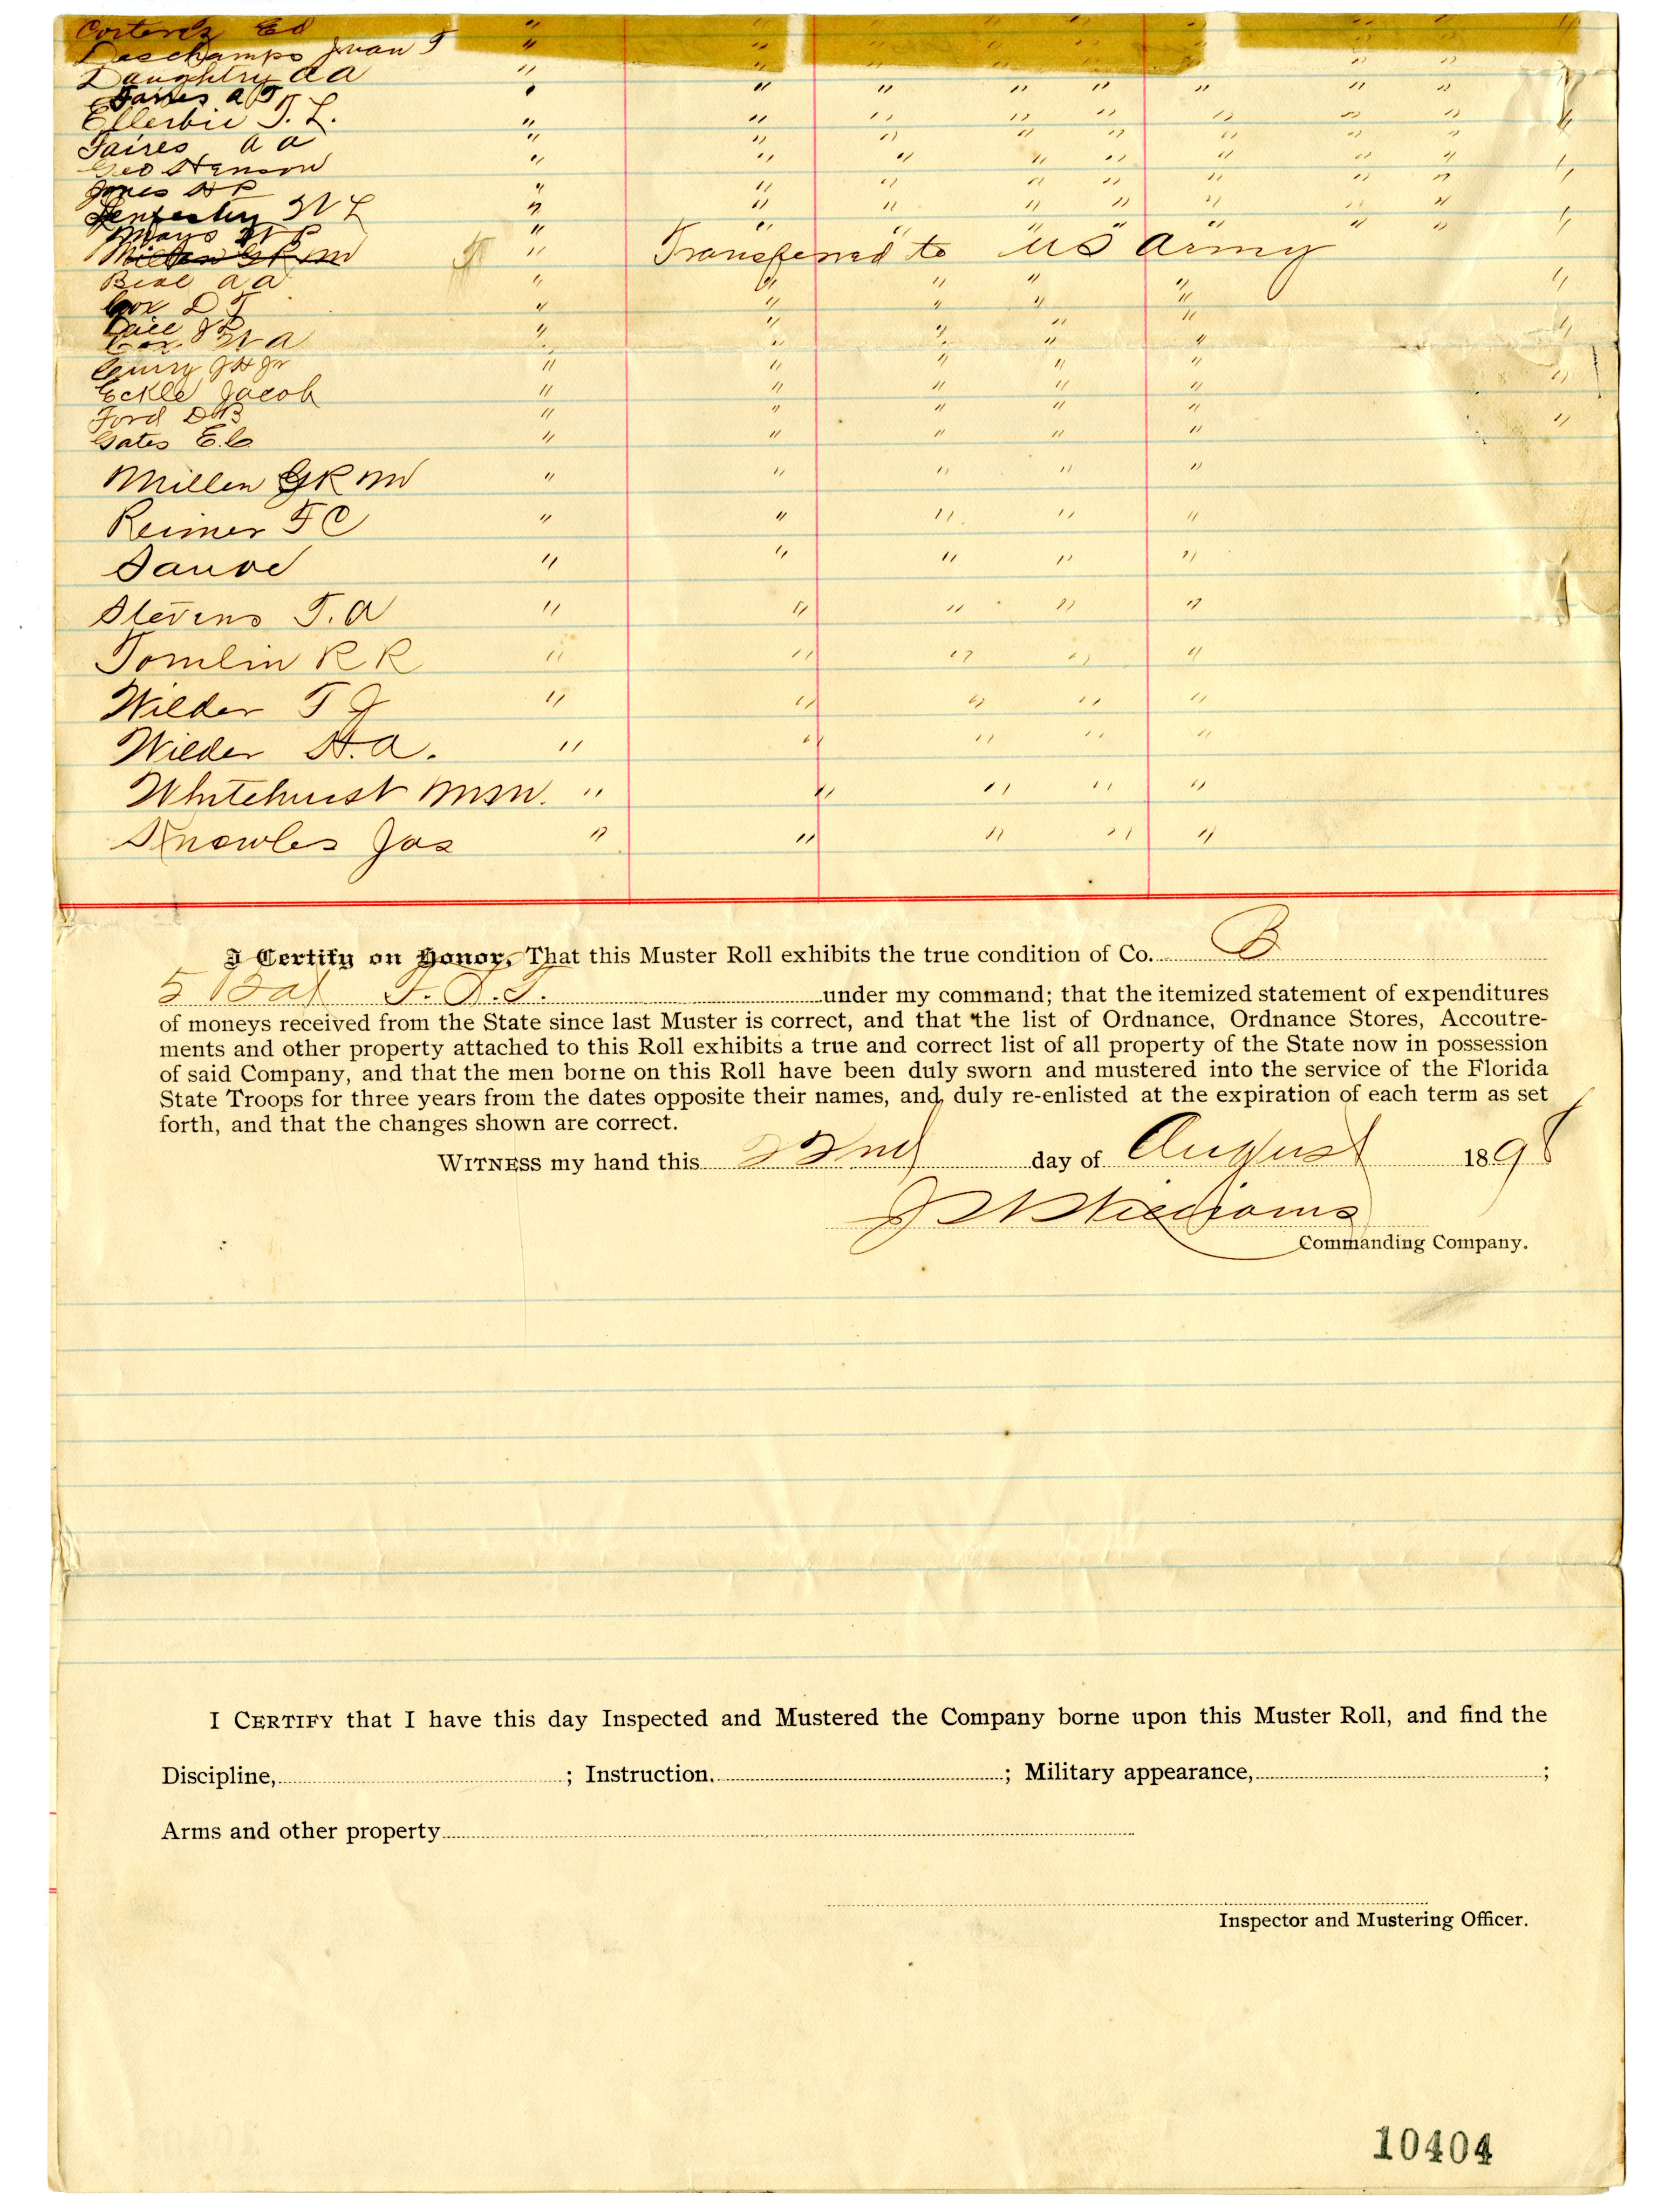 Corterez Ed " " " " " " " "
Deschamps Juan T " " " " " " " "
Daughtry A A " " " " " " " "
Faires A T " " " " " " " "
Ellerbie T. L. " " " " " " " " "
Faires A A " " " " " " " "
Geo Henson " " " " " " " " "
Jones H P " " " " " " " "
W L " " " " " " " "
Mays W P " " " " " " " " "
Millen G R M " Transferred to US Army
Beal A A " " " " " "
Cox D T " " " " "
J P " " " " " "
Cox W A " " " " "
Curry J H Jr " " " " "
Eckle Jacob " " " " " "
Ford D B " " " " "
Gates E. C " " " " " "
Millen G R M " " " " "
Reimer F C " " " " "
Sauve " " " " "
Stevens T. A " " " " "
Tomlin R R " " " " "
Wilder T J " " " " "
Wilder H. A. " " " " "
Whitehurst M M. " " " " "
Knowles Jas " " " " "
I Certify on Honor, That this Muster Roll exhibits the true condition of Co. B
5 Bat F. S. T. under my command; that the itemized statement of expenditures
of moneys received from the State since last Muster is correct, and that the list of Ordnance, Ordnance Stores, Accoutre-
ments and other property attached to this Roll exhibits a true and correct list of all property of the State now in possession
of said Company, and that the men borne on this Roll have been duly sworn and mustered into the service of the Florida
State Troops for three years from the dates opposite their names, and duly re-enlisted at the expiration of each term as set
forth, and that the changes shown are correct.
WITNESS my hand this 22nd day of August 1898
Williams
Commanding Company.
I CERTIFY that I have this day Inspected and Mustered the Company borne upon this Muster Roll, and find the
Discipline, ; Instruction. ; Military appearance, ;
Arms and other property
Inspector and Mustering Officer.
10404